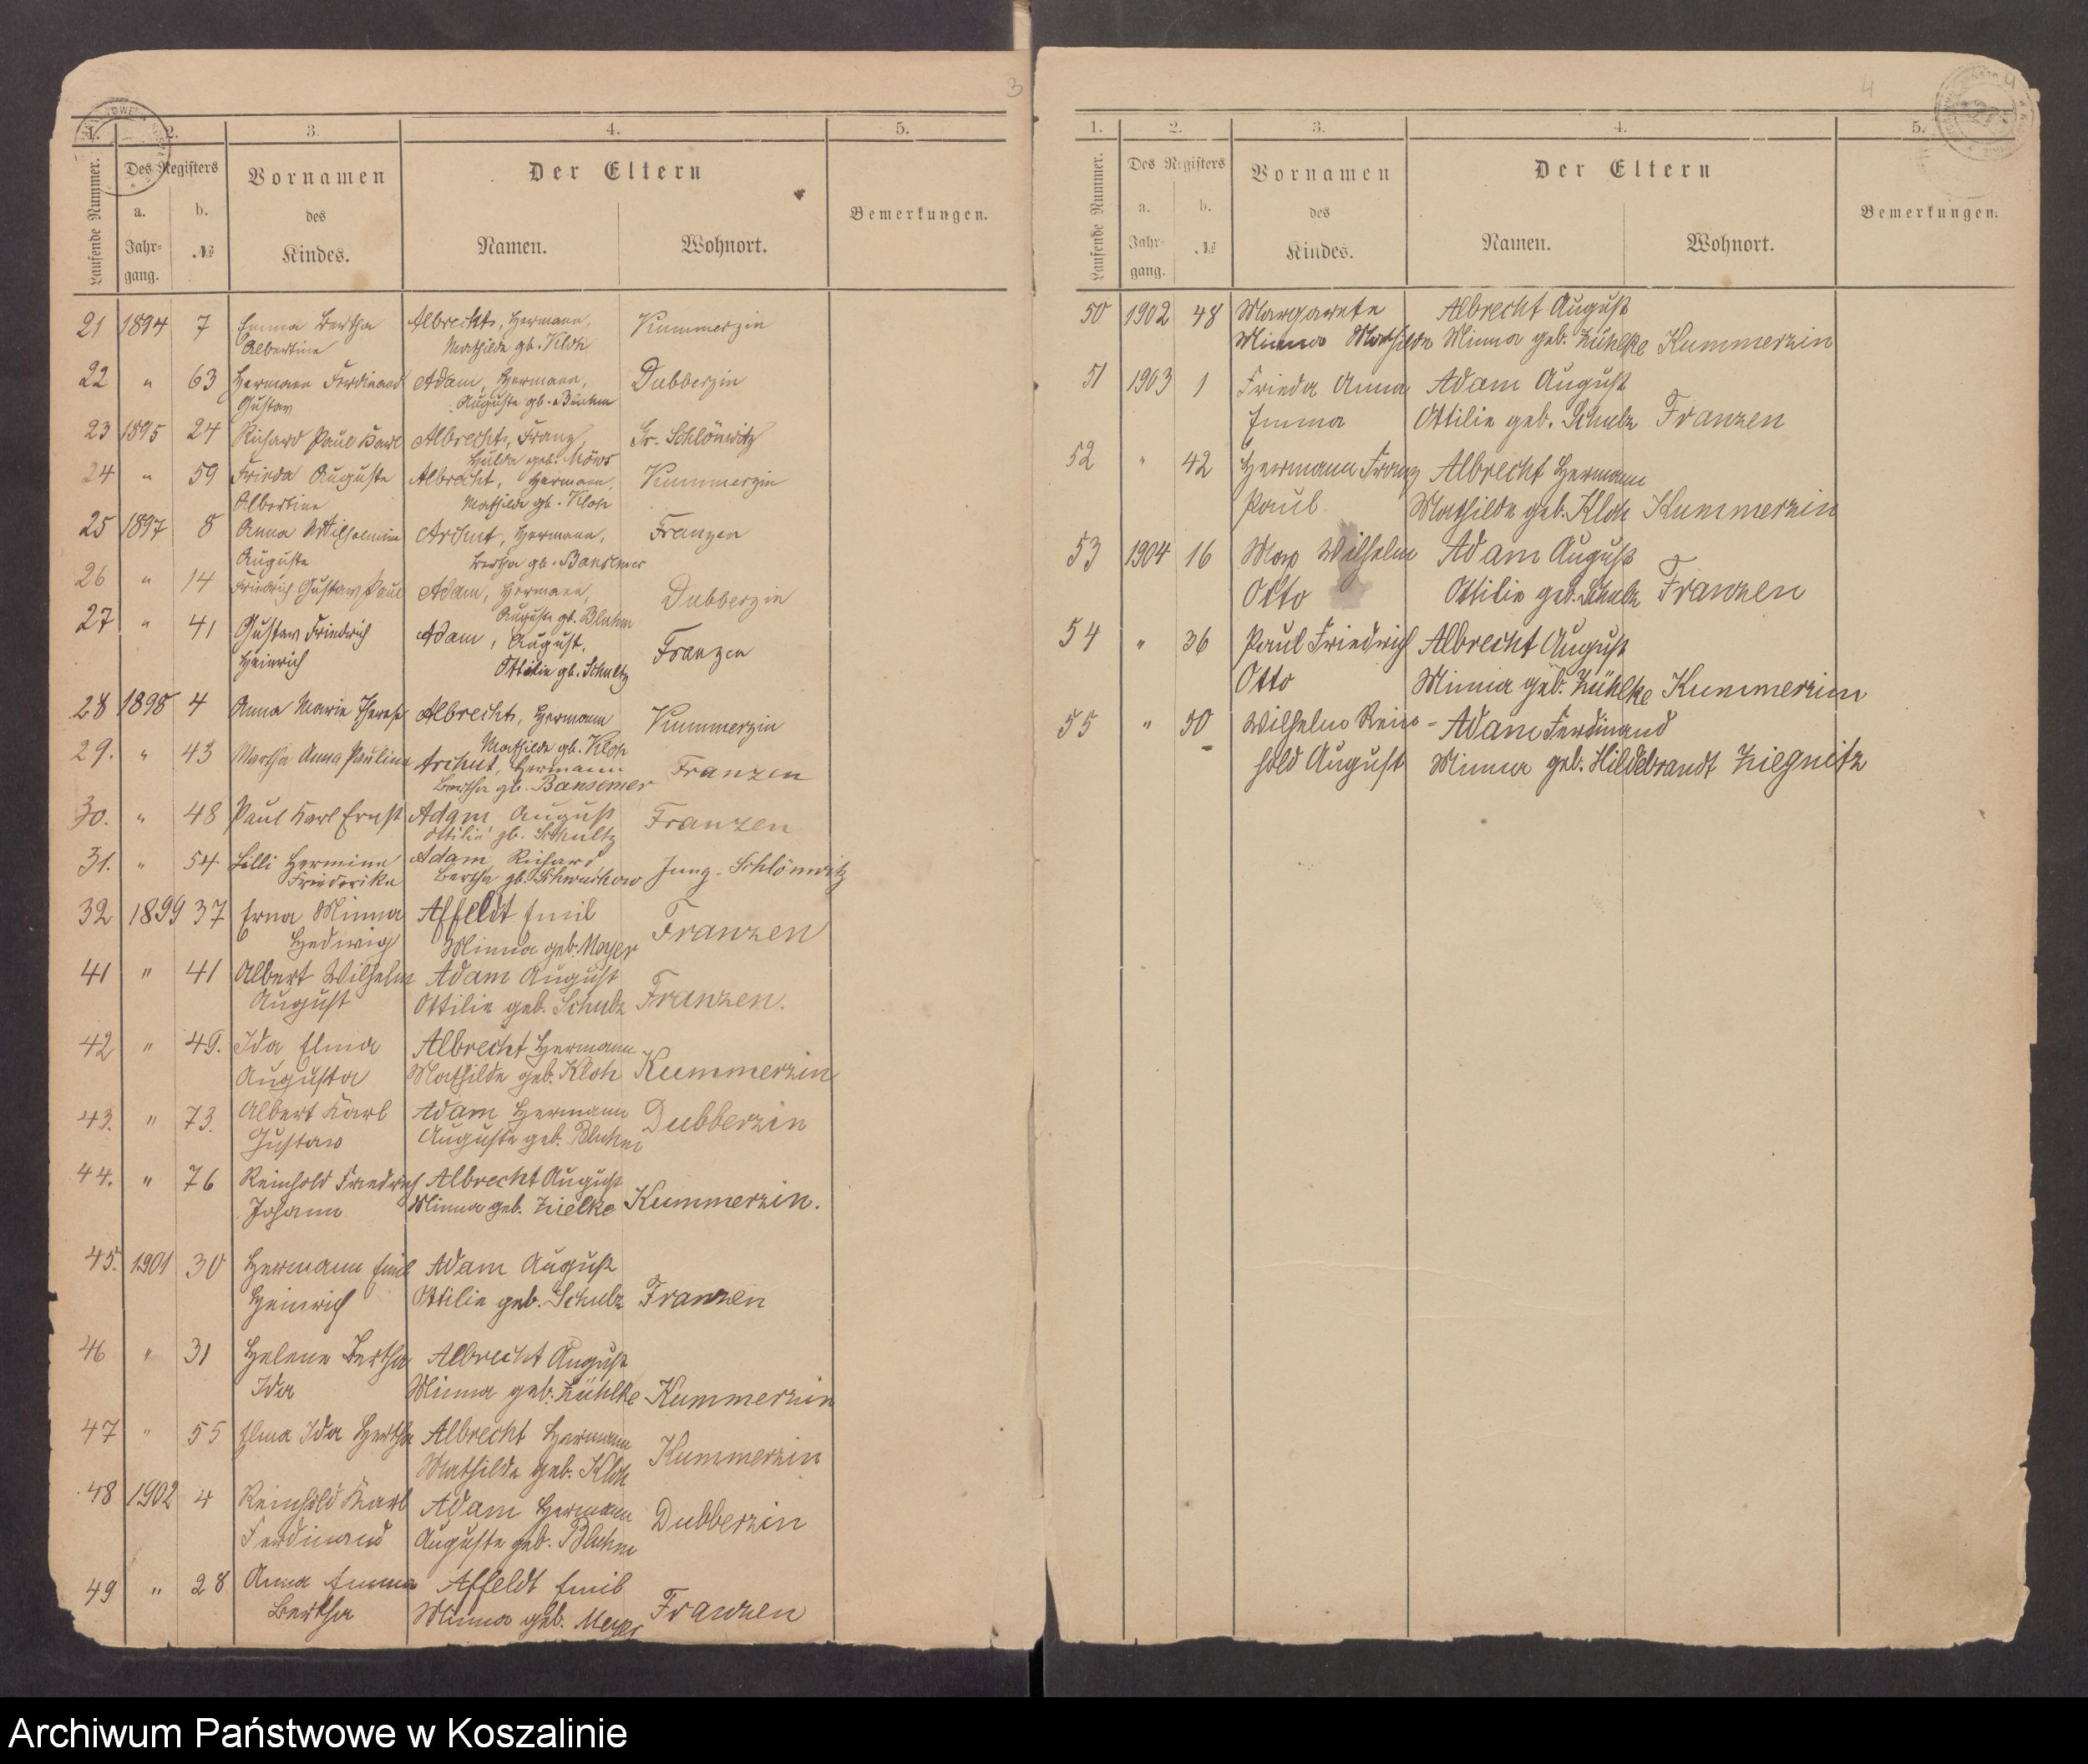 3
1.
2.
3.
4.
5.
Laufende Nummer.
Des Registers
a. Jahrgang.
b. №
Vornamen
des
Kindes.
Der Eltern
Namen.
Wohnort.
Bemerkungen.
21 1894 7 Emma Bertha Albrecht, Hermann, Kummerzin
Albertine Mathilde gb. Kloh
22 " 63 Hermann Ferdinand Adam, Hermann, Dubberzin
Gustav Auguste gb. Bluhm
23 1895 24 Richard Paul Karl Albrecht, Franz, Gr. Schlönwitz
Hulda geb. Möws
24 " 59 Frieda Auguste Albrecht, Hermann, Kummerzin
Albertine Mathilde gb. Kloh
25 1897 8 Anna Wilhelmine Archut, Hermann, Franzen
Auguste Bertha gb. Bansemer
26 " 14 Friedrich Gustav Paul Adam, Hermann, Dubberzin
Auguste gb. Bluhm
27 " 41 Gustav Friedrich Adam, August, Franzen
Heinrich Ottilie gb. Schultz
28 1898 4 Anna Marie Therese Albrecht, Hermann Kummerzin
Mathilde gb. Kloh
29. " 43 Martha Anna Pauline Archut, Hermann Franzen
Bertha gb. Bansemer
30. " 48 Paul Karl Ernst Adam August Franzen
Ottilie gb. Schultz
31. " 54 Lilli Hermine Adam, Richard Jung-Schlönwitz
Friederike Bertha gb.
32 1899 37 Erna Minna Affeldt Emil Franzen
Hedwig Minna geb. Meyer
41 " 41 Albert Wilhelm Adam August
August Ottilie geb. Schulz Franzen.
42 " 49. Ida Elma Albrecht Hermann
Augusta Mathilde geb. Kloh Kummerzin
43. " 73. Albert Karl Adam Hermann Dubberzin
Gustav Auguste geb. Bluhm
44. " 76 Reinhold Friedrich Albrecht August
Johann Minna geb. Zielke Kummerzin.
45. 1901 30 Hermann Emil Adam August
Heinrich Ottilie geb. Schulz Franzen
46 " 31 Helene Bertha Albrecht August
Ida Minna geb. Zühlke Kummerzin
47 " 55 Elma Ida Hertha Albrecht Hermann Kummerzin
Mathilde geb. Kloh
48 1902 4 Reinhold Karl Adam Hermann Dubberzin
Ferdinand Auguste geb. Bluhm
49 " 28 Anna Emma Affeldt Emil Franzen
Bertha Minna geb. Meyer
4
1.
2.
3.
4.
5.
Laufende Nummer.
Des Registers
a. Jahrgang.
b. №
Vornamen
des
Kindes.
Der Eltern
Namen.
Wohnort.
Bemerkungen.
50 1902 48 Margarete Albrecht August
Minna Mathilde Minna geb. Zühlke Kummerzin
51 1903 1 Frieda Anna Adam August
Emma Ottilie geb. Schulz Franzen
52 " 42 Hermann Franz Albrecht Hermann
Paul Mathilde geb. Kloh Kummerzin
53 1904 16 Max Wilhelm Adam August
Otto Ottilie geb. Schulz Franzen
54 " 36 Paul Friedrich Albrecht August
Otto Minna geb. Zühlke Kummerzin
55 " 50 Wilhelm Rein- Adam Ferdinand
hold August Minna geb. Hildebrandt Ziegnitz
Archiwum Państwowe w Koszalinie